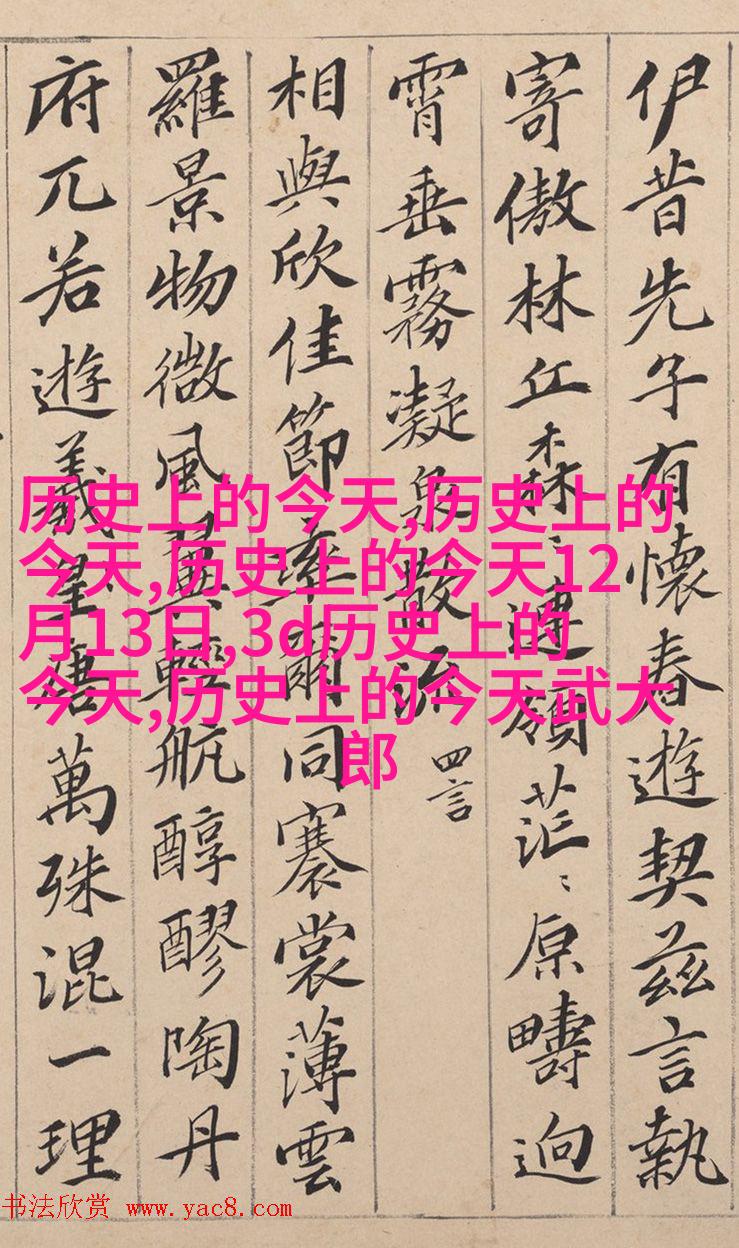 伊昔先子有懷春遊契茲言執
寄傲林丘森〻連嶺茫〻原疇迥
霄垂霧凝泉散流 四言
相與欣佳節率爾同褰裳薄雲
羅景物微風翼輕航醇醪陶丹
府兀若遊羲皇唐萬殊混一理
历史上的今天,历史上的
今天,历史上的今天12
月13日,3d历史上的
今天,历史上的今天武大
郎
书法欣赏 www.yac8.com